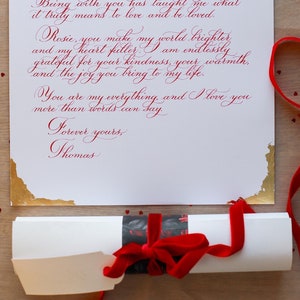 Being with you has taught me what
it truly means to love and be loved.
Rosie, you make my world brighter
and my heart fuller. I am endlessly
grateful for your kindness, your warmth,
and the joy you bring to my life.
You are my everything, and I love you
more than words can say.
Forever yours,
Thomas